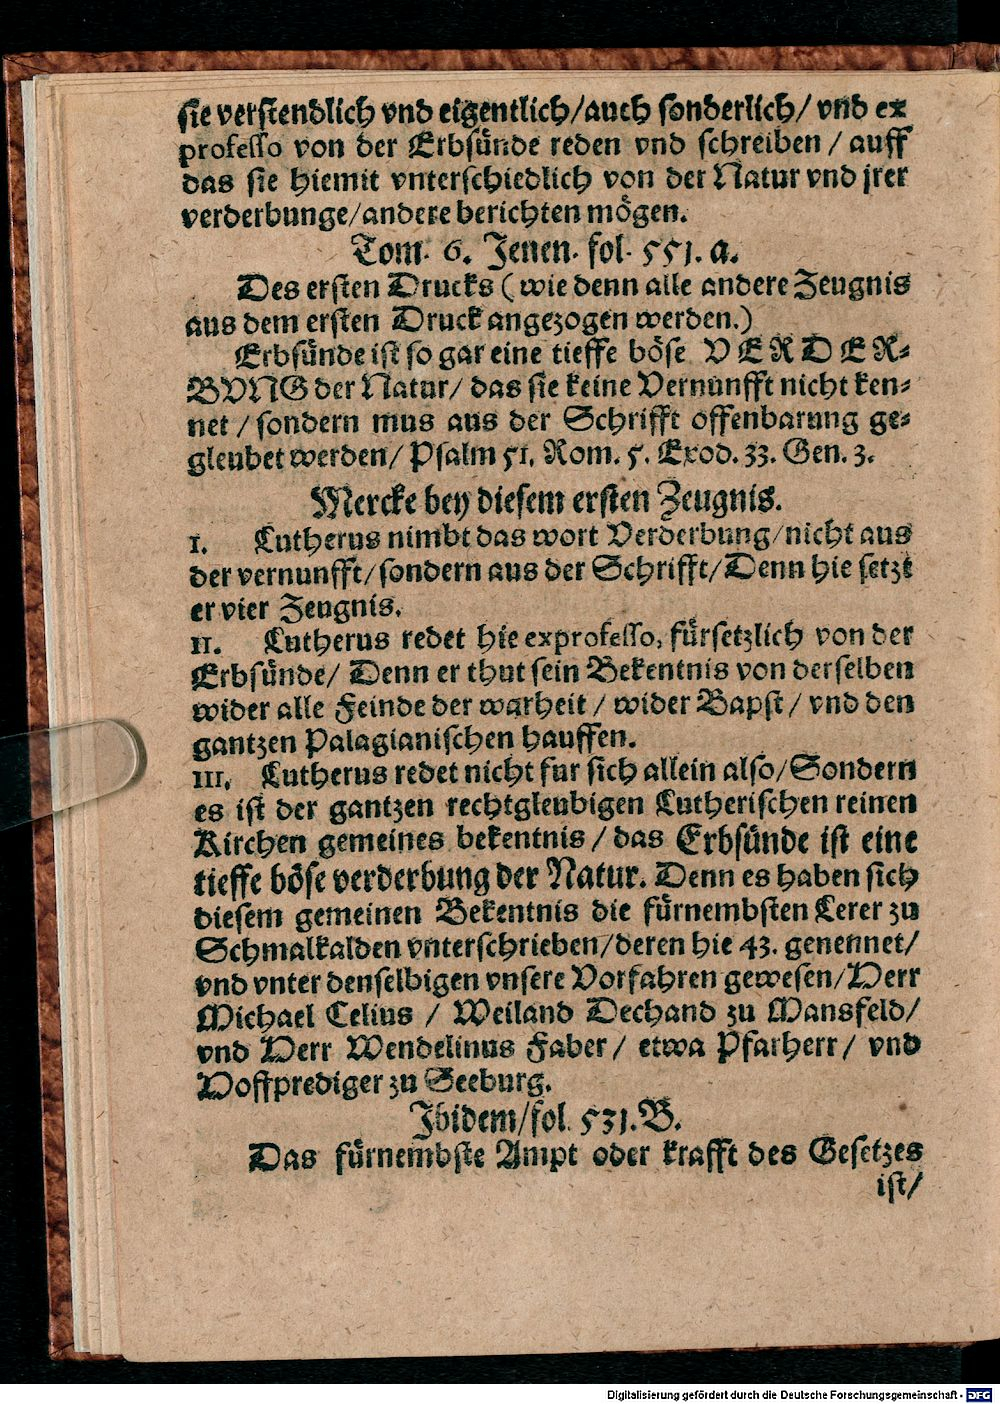 sie verstendlich vnd eigentlich/auch sonderlich/ vnd ex
professo von der Erbsünde reden vnd schreiben / auff
das sie hiemit vnterschiedlich von der Natur vnd jrer
verderbunge/andere berichten mögen.
Tom. 6. Jenen. fol. 551. a.
Des ersten Drucks ( wie denn alle andere Zeugnis
aus dem ersten Druck angezogen werden.)
Erbsünde ist so gar eine tieffe böse VERDER-
BVNG der Natur/ das sie keine Vernunfft nicht ken-
net / sondern mus aus der Schrifft offenbarung ge-
gleubet werden/ Psalm 51. Rom. 5. Exod. 33. Gen. 3.
Mercke bey diesem ersten Zeugnis.
I. Lutherus nimbt das wort Verderbung/nicht aus
der vernunfft/sondern aus der Schrifft/Denn hie setzt
er vier Zeugnis.
II. Lutherus redet hie exprofesso, fürsetzlich von der
Erbsünde/ Denn er thut sein Bekentnis von derselben
wider alle Feinde der warheit / wider Bapst / vnd den
gantzen Palagianischen hauffen.
III. Lutherus redet nicht fur sich allein also/Sondern
es ist der gantzen rechtgleubigen Lutherischen reinen
Kirchen gemeines bekentnis / das Erbsünde ist eine
tieffe böse verderbung der Natur. Denn es haben sich
diesem gemeinen Bekentnis die fürnembsten Lerer zu
Schmalkalden vnterschrieben/deren hie 43. genennet/
vnd vnter denselbigen vnsere Vorfahren gewesen/Herr
Michael Celius / Weiland Dechand zu Mansfeld/
vnd Herr Wendelinus Faber / etwa Pfarherr / vnd
Hoffprediger zu Seeburg.
Jbidem/fol. 531. B.
Das fürnembste Ampt oder krafft des Gesetzes
ist/
Digitalisierung gefördert durch die Deutsche Forschungsgemeinschaft - DFG